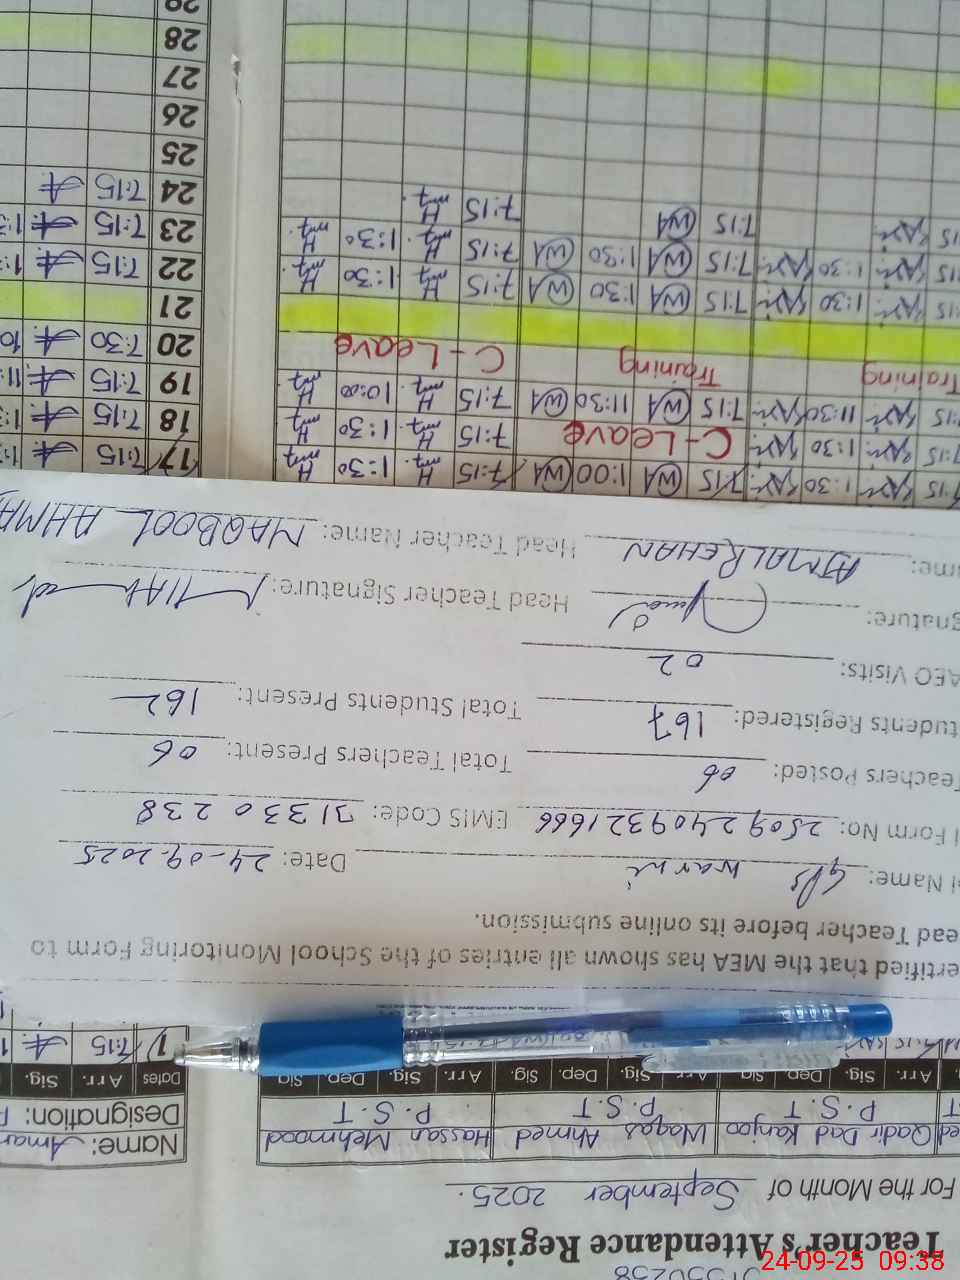 Teacher's Attendance Register
For the Month of September 2025.
Qadir Dad Kanjoo Waqas Ahmed Hassan Mehmood Name:
P.S.T P.S.T P.S.T Designation:
Arr. Sig. Dep. Sig. Arr. Sig. Dep. Sig. Arr. Sig. Dep. Sig. Dates Arr. Sig.
1 7:15 A
ertified that the MEA has shown all entries of the School Monitoring Form to
ead Teacher before its online submission.
l Name: GPS warni Date: 24-09-2025
l Form No: 2509240921666 EMIS Code: 31330238
Teachers Posted: 06 Total Teachers Present: 06
tudents Registered: 167 Total Students Present: 162
AEO Visits: 02
gnature: Head Teacher Signature:
ame: AJMAL REHAN Head Teacher Name: MAQBOOL AHMA
7:15 1:30 7:15 WA 1:00 WA 7:15 H 1:30 H 17 7:15 A
7:15 1:30 C-Leave 7:15 H 1:30 H 18 7:15 A
7:15 11:30 7:15 WA 11:30 WA 7:15 H 10:00 H 19 7:15 A
Training Training C-Leave 20 7:30 A 10
21
7:15 1:30 7:15 WA 1:30 WA 7:15 H 1:30 H 22 7:15 A
7:15 1:30 7:15 WA 1:30 WA 7:15 H 1:30 H 23 7:15 A
7:15 7:15 WA 7:15 H 24 7:15 A
25
26
27
28
29
24-09-25 09:38